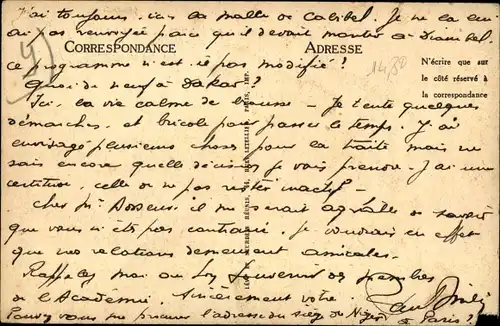 J'ai toujours ici la malle de Calibel. Je ne la lui
ai pas renvoyée parce qu'il devait monter à Diambel.
CORRESPONDANCE ADRESSE
ce programme n'est-il pas modifié?
N'écrire que sur
le côté réservé à
la correspondance
14,30
Quoi de neuf à Dakar?
Ici, la vie calme de brousse. Je tente quelques
démarches, et bricole pour passer le temps. J'ai
envisagé plusieurs choses pour la traite mais ne
sais encore quelle décision je vais prendre. J'ai une
certitude, celle de ne pas rester inactif.
Cher Mr il me serait agréable de savoir
que vous n'êtes pas contrarié, je voudrais en effet
que nos relations demeurent amicales.
Rappelez moi au bon souvenir des membres
de l'Académie. Sincèrement vôtre. Paul
Pouvez vous me procurer l'adresse du siège de Niger
à Paris?